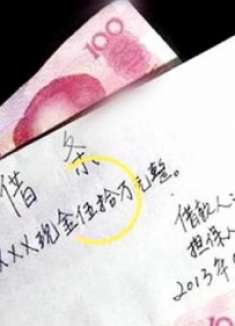 100
借条
XXX现金伍拾万元整。
借款人:
担保人
2013年